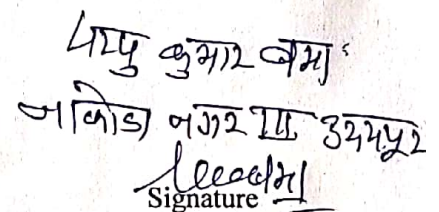 कुमार वर्मा
नाकोडा नगर III उदयपुर
Signature